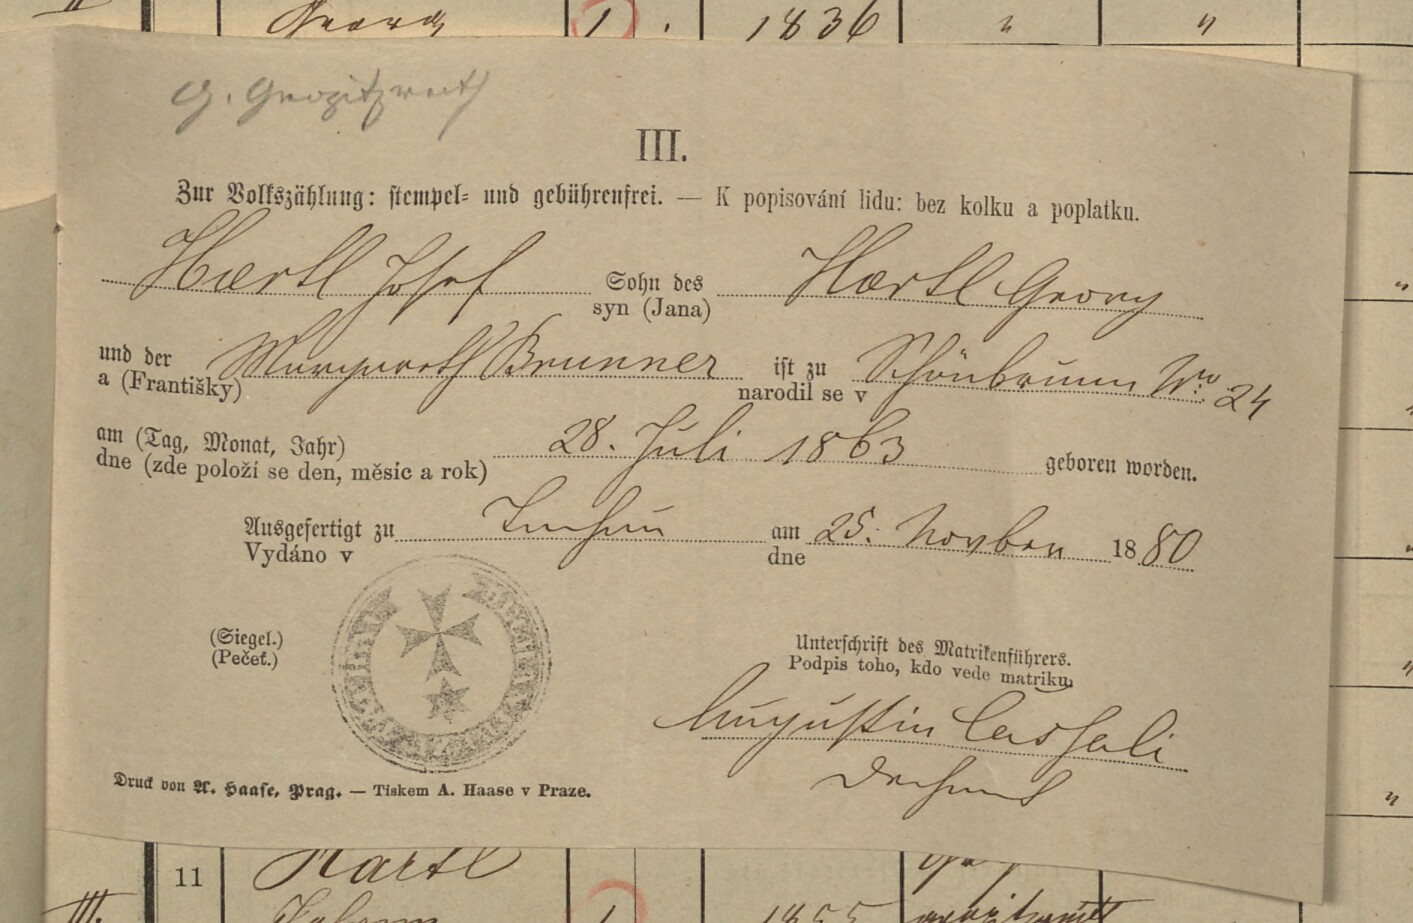 Georg 1 . 1836 " "
III.
Zur Volkszählung: stempel- und gebührenfrei. — K popisování lidu: bez kolku a poplatku.
Haertl Josef Sohn des Haertl Georg
syn (Jana)
und der Margareth Brunner ist zu Schönbrunn Nro 24
a (Františky) narodil se v
am (Tag, Monat, Jahr) 28. Juli 1863 geboren worden.
dne (zde položí se den, měsíc a rok)
Ausgefertigt zu am 25. Novber 1880
Vydáno v dne
(Siegel.) Unterschrift des Matrikenführers.
(Pečeť.) Podpis toho, kdo vede matriku.
Augustin
Dechant
Druck von A. Haase, Prag. — Tiskem A. Haase v Praze.
11 Härtl
III. Johann 1 1855